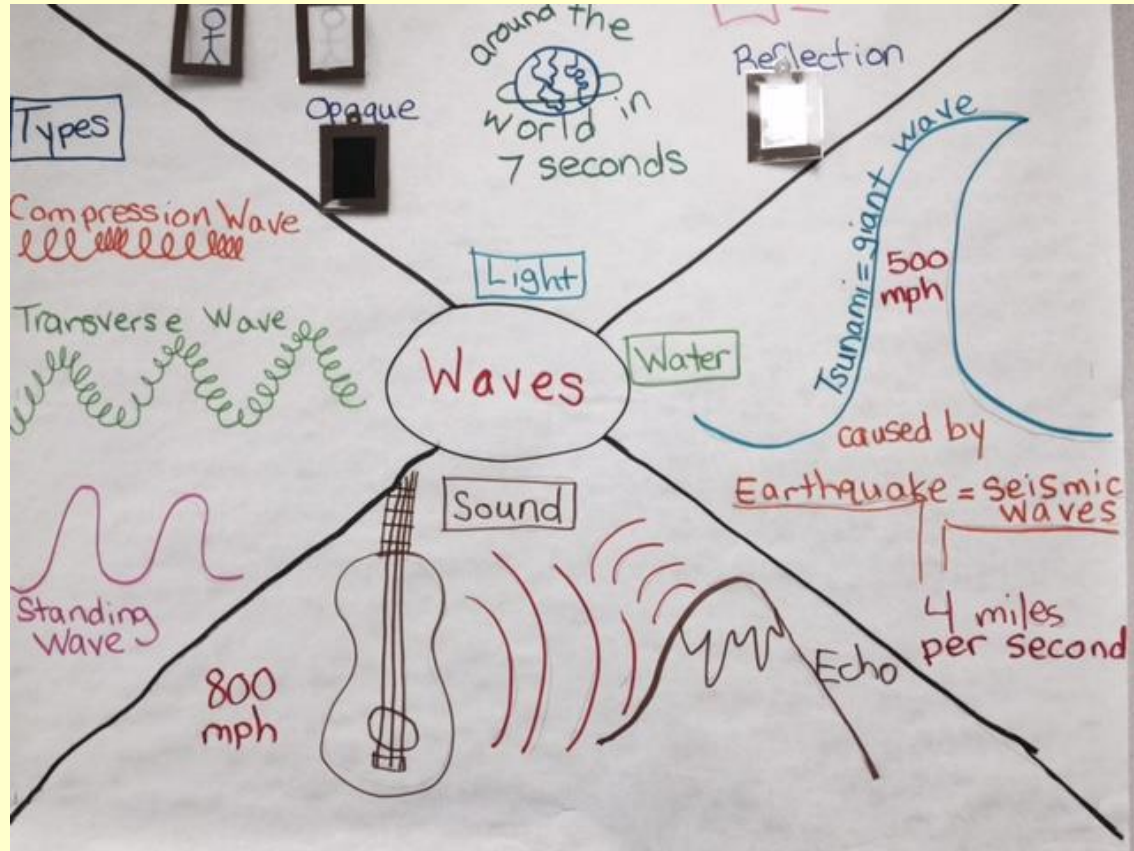 Types
Compression Wave
Transverse Wave
Standing
Wave
Opaque
around the
world in
7 seconds
Reflection
Light
Waves
Water
Tsunami = giant wave
500
mph
caused by
Earthquake = seismic
waves
4 miles
per second
Sound
800
mph
Echo